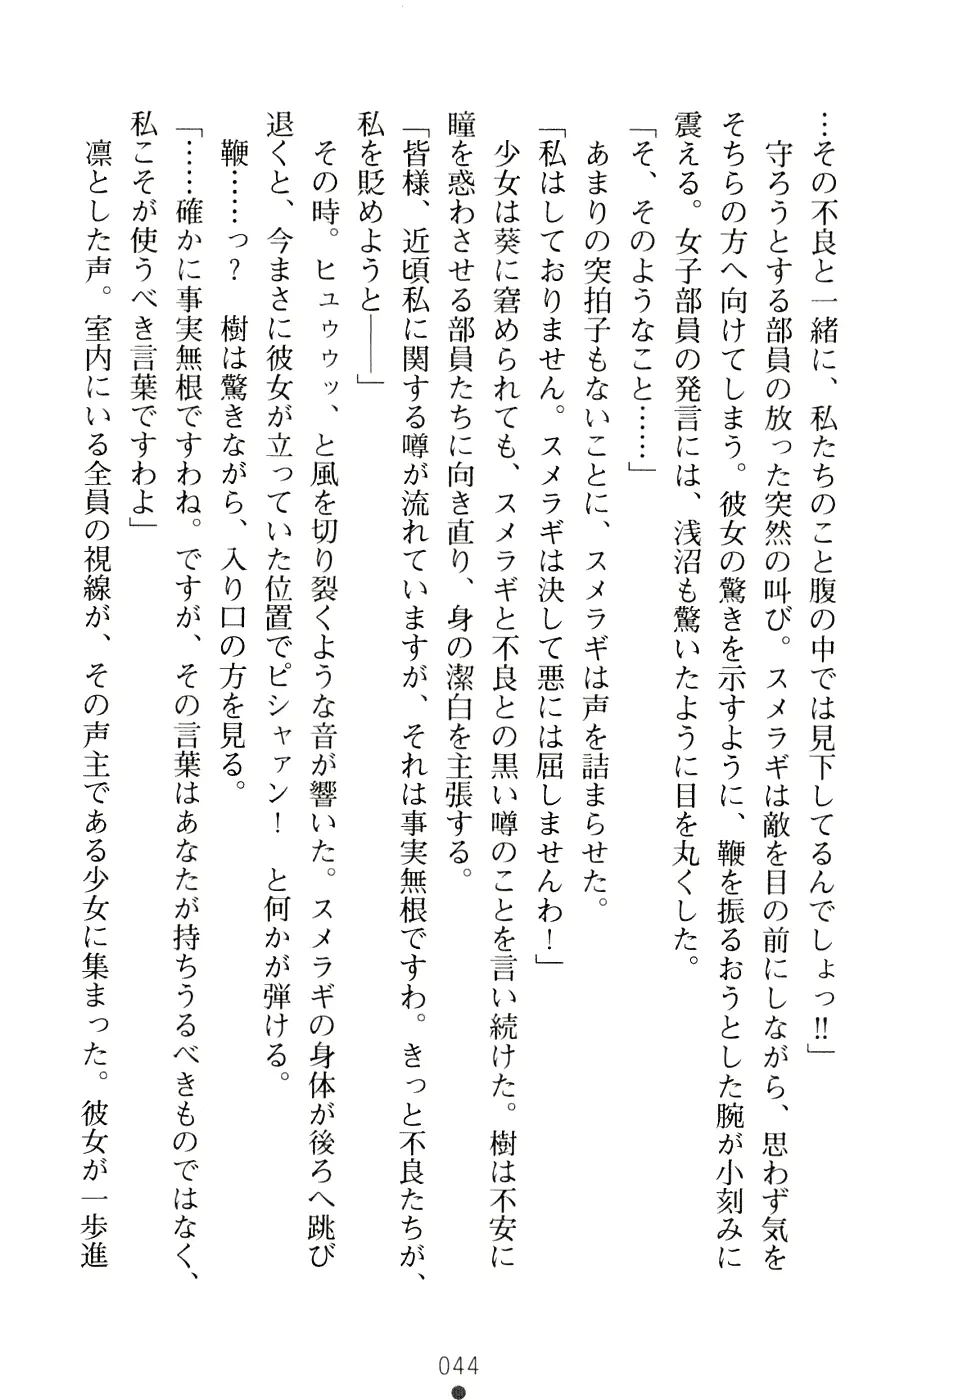 …その不良と一緒に、私たちのこと腹の中では見下してるんでしょっ!!」
　守ろうとする部員の放った突然の叫び。スメラギは敵を目の前にしながら、思わず気を
そちらの方へ向けてしまう。彼女の驚きを示すように、鞭を振るおうとした腕が小刻みに
震える。女子部員の発言には、浅沼も驚いたように目を丸くした。
「そ、そのようなこと……」
　あまりの突拍子もないことに、スメラギは声を詰まらせた。
「私はしておりません。スメラギは決して悪には屈しませんわ！」
　少女は葵に窘められても、スメラギと不良との黒い噂のことを言い続けた。樹は不安に
瞳を惑わさせる部員たちに向き直り、身の潔白を主張する。
「皆様、近頃私に関する噂が流れていますが、それは事実無根ですわ。きっと不良たちが、
私を貶めようと――」
　その時。ヒュゥゥッ、と風を切り裂くような音が響いた。スメラギの身体が後ろへ跳び
退くと、今まさに彼女が立っていた位置でピシャァン！　と何かが弾ける。
　鞭……っ？　樹は驚きながら、入り口の方を見る。
「……確かに事実無根ですわね。ですが、その言葉はあなたが持ちうるべきものではなく、
私こそが使うべき言葉ですわよ」
　凛とした声。室内にいる全員の視線が、その声主である少女に集まった。彼女が一歩進
044